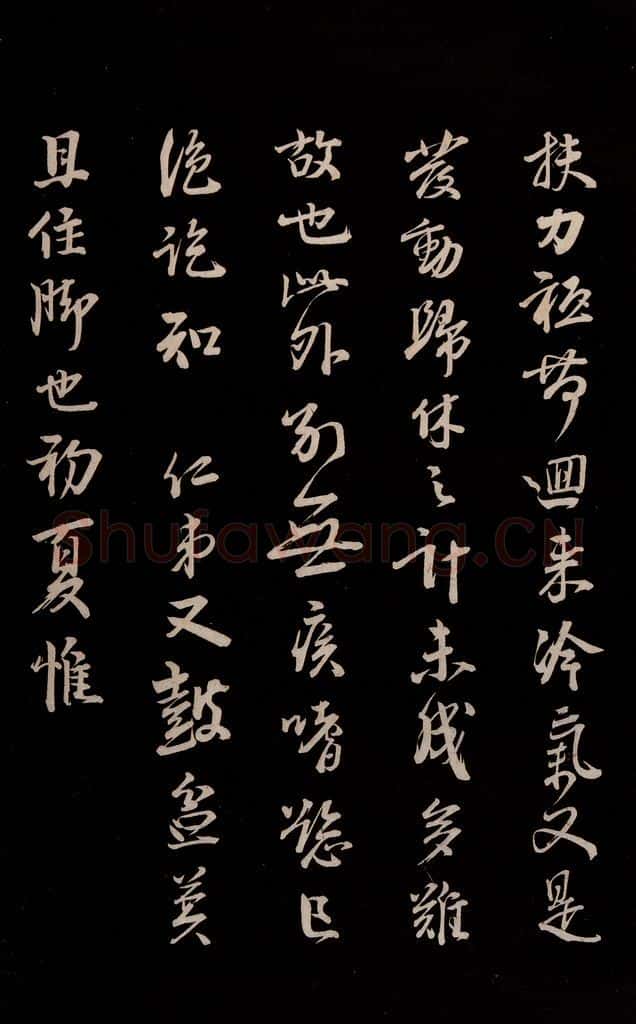 扶力祗勞迴来冷氣又是
發動歸休之計未成多難
故也此外別無疾嗜慾已
絶訖知 仁弟又鼓盆莫
且住脚也初夏惟
Shufawang.CN